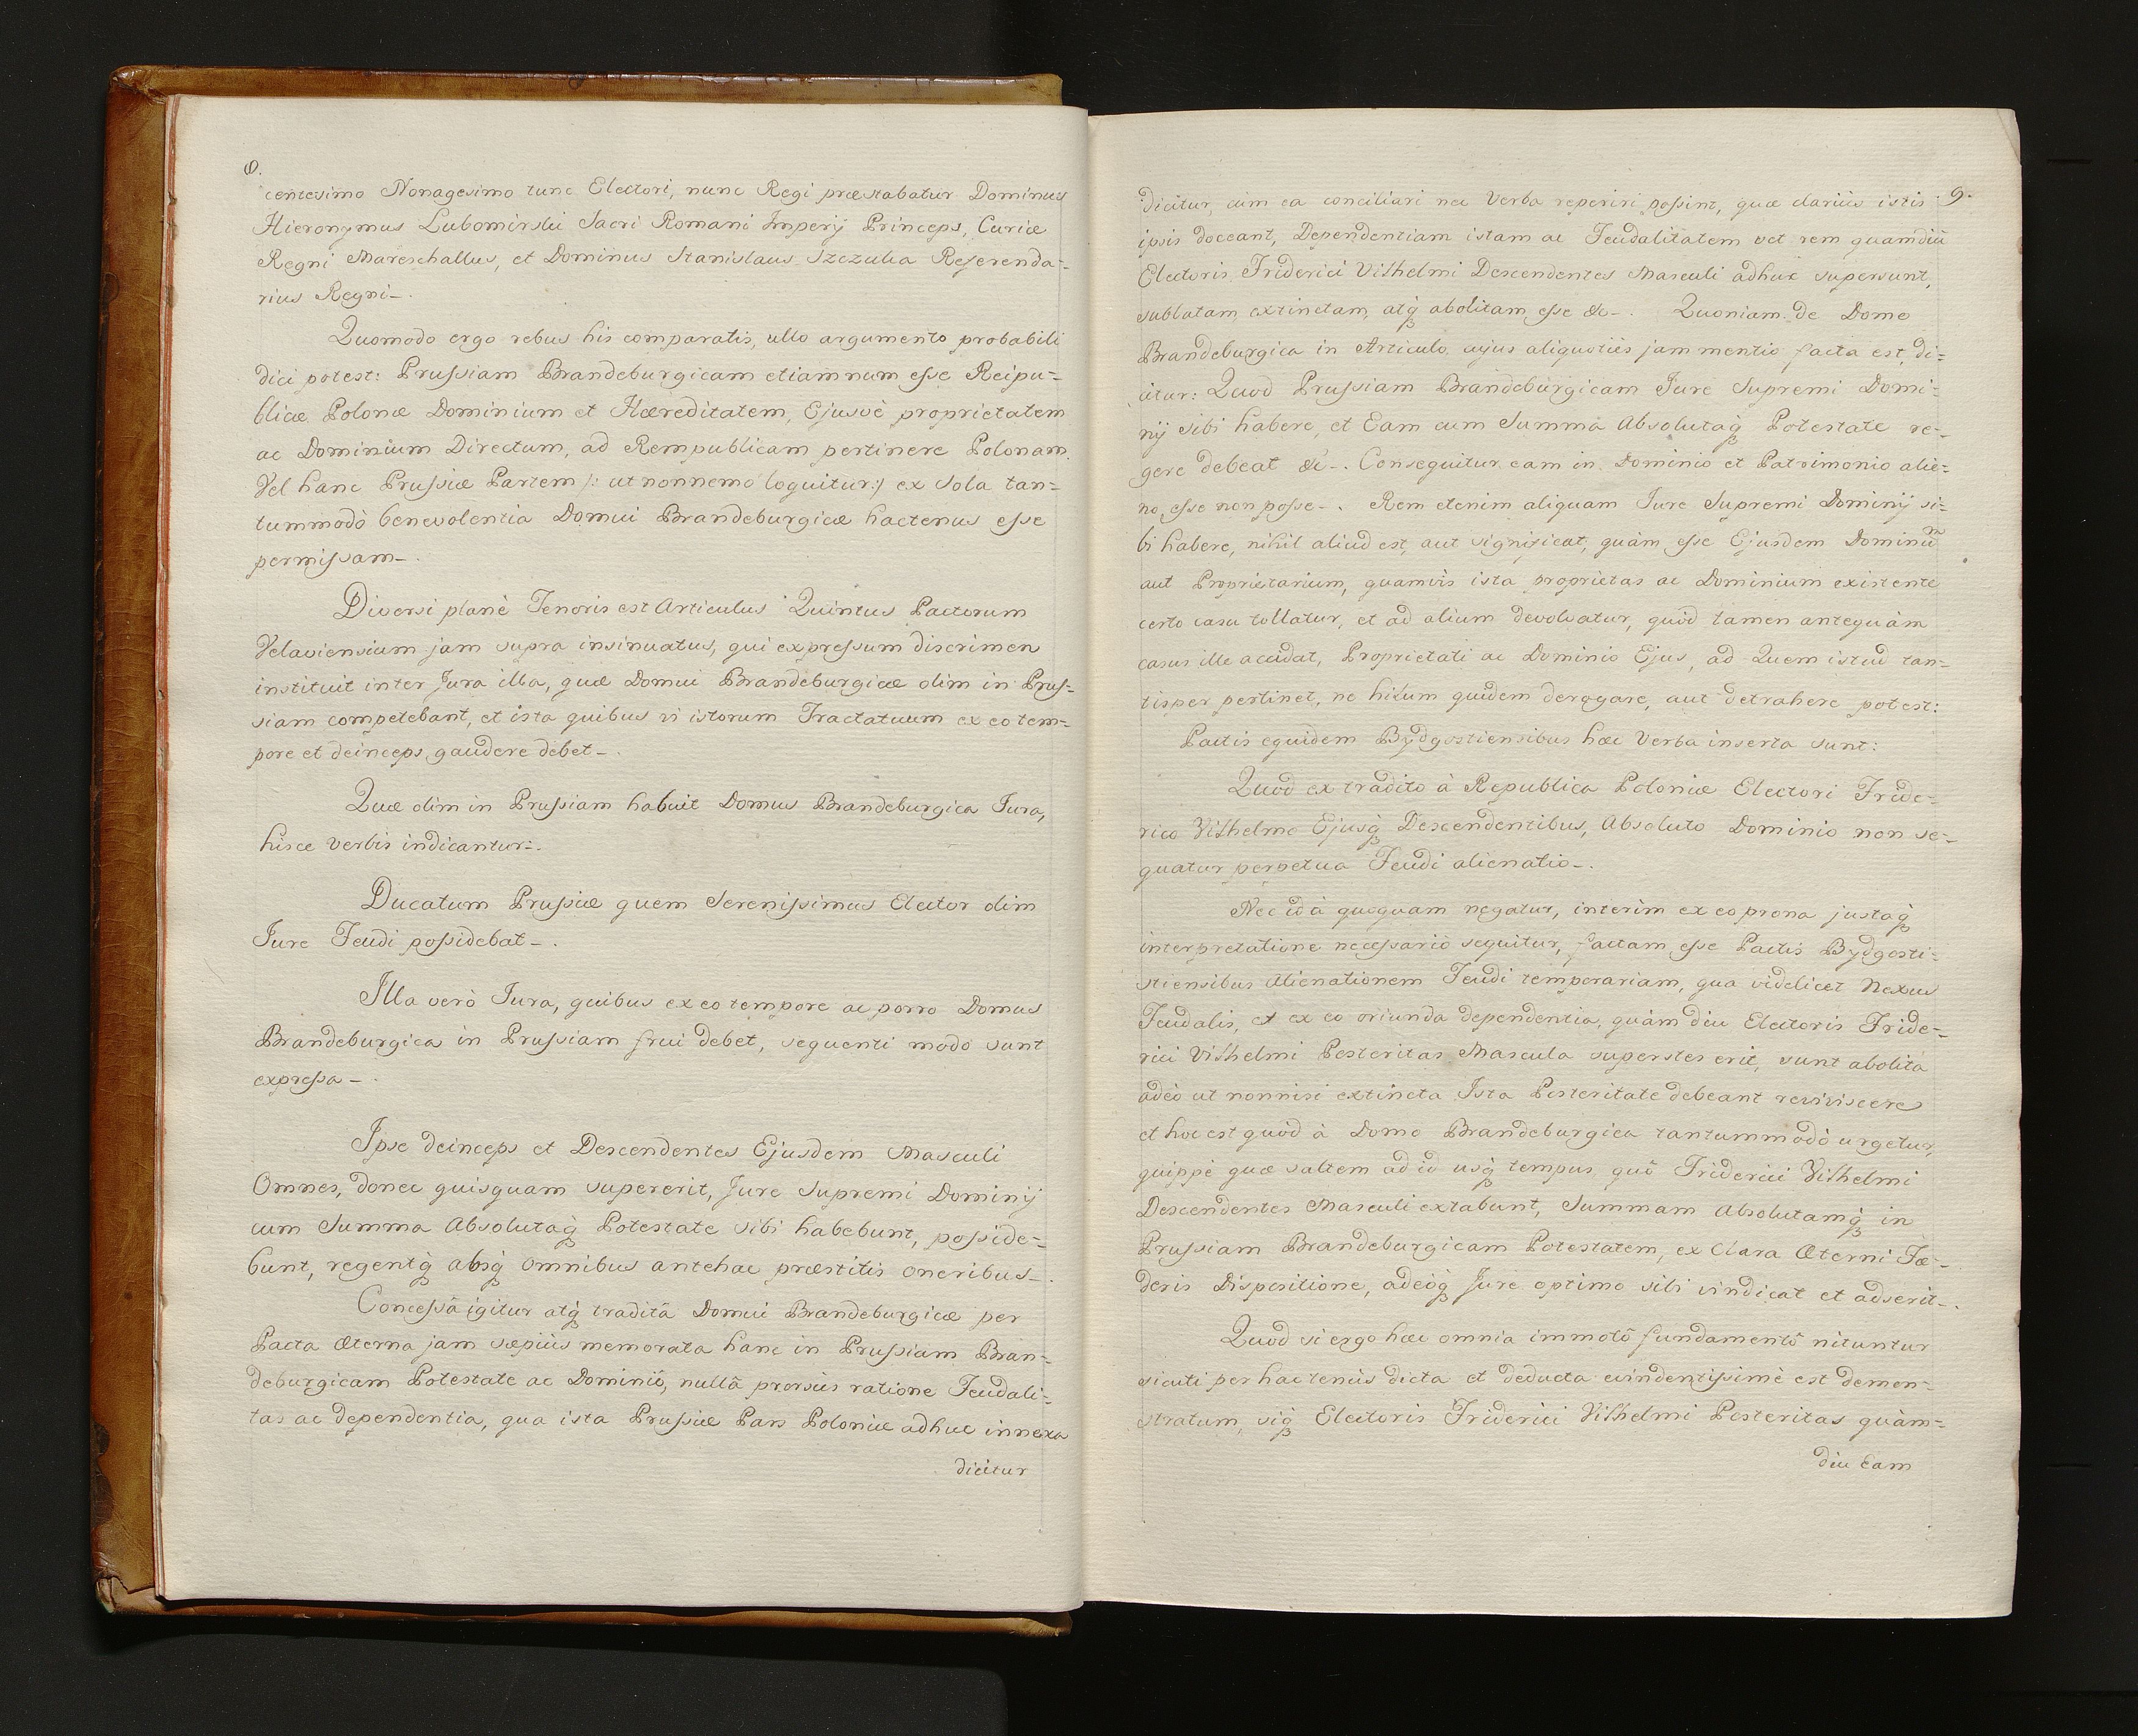 8.
centesimo Nonagesimo tunc Electori, nunc Regi præstabatur Dominus
Hieronymus Lubomirski Sacri Romani Imperij Princeps, Curiæ
Regni Mareschallus, et Dominus Stanislaus Szczuka Referenda=
rius Regni-.
Quomodo ergo rebus his comparatis, ullo argumento probabili
dici potest: Prussiam Brandeburgicam etiamnum esse Reipu=
blicæ Polonæ Dominium et Hæreditatem, Ejusvè proprietatem
ac Dominium Directum, ad Rempublicam pertinere Polonam.
Vel hanc Prussiæ Partem /: ut nonnemo loquitur:/ ex sola tan=
tummodò benevolentia Domui Brandeburgicæ hactenus esse
permissam-.
Diversi planè Tenoris est Articulus Quintus Pactorum
Velaviensium jam supra insinuatus, qui expressum discrimen
instituit inter Jura illa, quæ Domui Brandeburgicæ olim in Prus=
siam competebant, et ista quibus vi istorum Tractatuum ex eo tem=
pore et deinceps gaudere debet-.
Quæ olim in Prussiam habuit Domus Brandeburgica Jura,
hisce verbis indicantur:.
Ducatum Prussiæ quem Serenissimus Elector olim
Jure Feudi possidebat-.
Illa verò Jura, quibus ex eo tempore ac porro Domus
Brandeburgica in Prussiam frui debet, sequenti modo sunt
expressa-.
Ipse deinceps et Descendentes Ejusdem Masculi
Omnes, donec quisquam supererit, Jure Supremi Dominij
cum Summa Absolutaq̃ Potestate sibi habebunt, posside=
bunt, regentq̃ absq̃ omnibus antehac præstitis oneribus-.
Concessâ igitur atq̃ traditâ Domui Brandeburgicæ per
Pacta Æterna jam sæpiùs memorata hanc in Prussiam Bran=
deburgicam Potestate ac Dominiô, nullâ prorsùs ratione Feudali=
tas ac dependentia, qua ista Prussiæ Pars Poloniæ adhuc innexa
dicitur
9.
dicitur, cum ea conciliari nec Verba reperiri possint, quæ clariùs istis
ipsis doceant, Dependentiam istam ac Feudalitatem vet rem quamdiù
Electoris Friderici Vilhelmi Descendentes Masculi adhuc supersunt,
sublatam, extinctam, atq̃ abolitam esse &c-. Quoniam de Domo
Brandeburgica in Articulo, cujus aliquotiès jam mentio facta est, di=
citur: Quod Prussiam Brandeburgicam Jure Supremi Domi=
nij sibi habere, et Eam cum Summa Absolutaq̃ Potestate re=
gere debeat &c-. Consequitur eam in Dominio et Patrimonio alie=
no esse non posse-. Rem etenim aliquam Jure Supremi Dominij si=
bi habere, nihil aliud est, aut significat, quàm esse Ejusdem Dominũ
aut Proprietarium, quamvis ista proprietas ac Dominium existente
certo casu tollatur, et ad alium devolvatur, quòd tamen antequàm
casus ille accidat, Proprietati ac Dominio Ejus, ad Quem istud tan=
tisper pertinet, ne hilum quidem derogare, aut detrahere potest:
Pactis equidem Bydgostiensibus hæc Verba inserta sunt:
Quod ex tradito à Republica Poloniæ Electori Fride=
rico Vilhelmo Ejusq̃ Descendentibus, Absoluto Dominio non se=
quatur perpetua Feudi alienatio-.
Nec id à quoquam negatur, interim ex eo prona justaq̃
interpretatione necessariò sequitur, factam esse Pactis Bydgosti=
stiensibus Alienationem Feudi temporariam, qua videlicet Nexus
Feudalis, et ex eo oriunda dependentia, quàm diu Electoris Fride=
rici Vilhelmi Posteritas Mascula superstes erit, sunt abolita
adeò ut nonnisi extincta Ista Posteritate debeant reviviscere
et hoc est quòd à Domo Brandeburgica tantummodò urgetur,
quippè quæ saltem ad id usq̃ tempus, quô Friderici Vilhelmi
Descendentes Masculi extabunt, Summam Absolutamq̃ in
Prussiam Brandeburgicam Potestatem, ex Clara Æterni Fæ=
deris Dispositione, adeóq̃ Jure optimo sibi vindicat et adserit-.
Quod si ergo hæc omnia immotô fundamentô nituntur
sicuti per hactenùs dicta et deducta evindentissimè est demon=
stratum, siq̃ Electoris Friderici Vilhelmi Posteritas quàm=
diu Eam